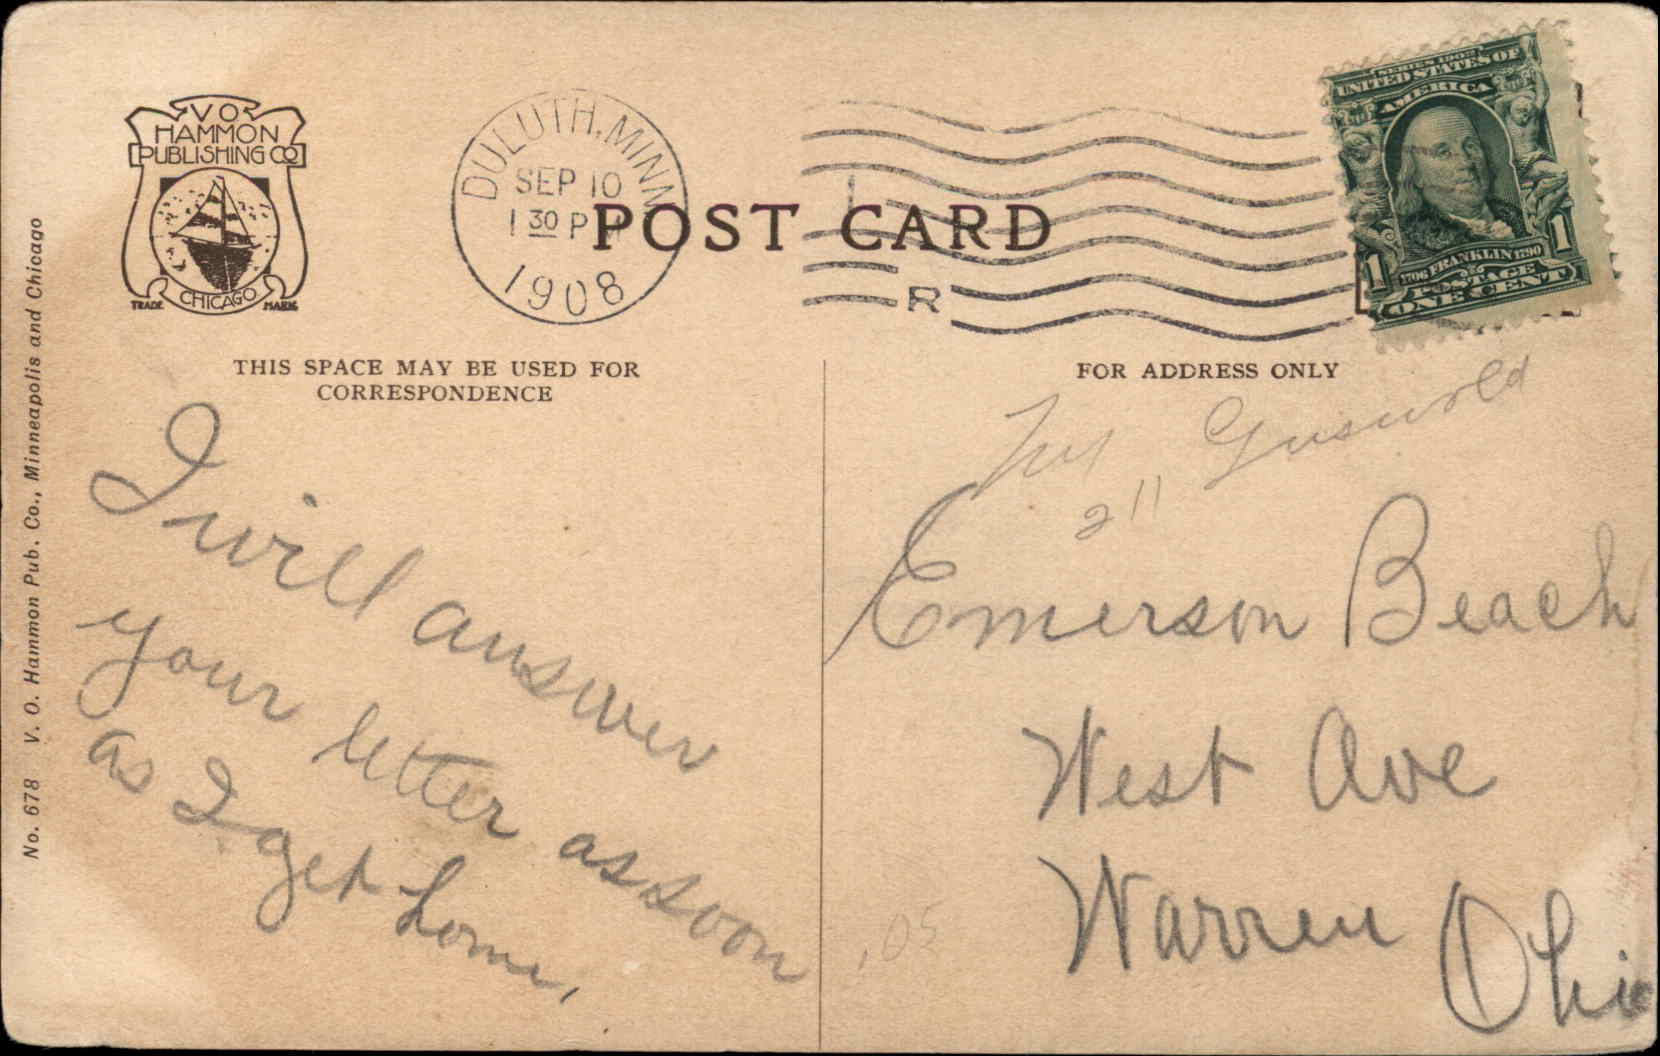 VO
HAMMON
PUBLISHING CO
CHICAGO
TRADE MARK
DULUTH, MINN
SEP 10
1 30 P M
1908
POST CARD
R
SERIES 1902
UNITED STATES OF
AMERICA
1706 FRANKLIN 1790
1 1
POSTAGE
ONE CENT
THIS SPACE MAY BE USED FOR
CORRESPONDENCE
FOR ADDRESS ONLY
I will answer
your letter as soon
as I get home,
Griswold
211
Emerson Beach
West Ave
Warren Ohio
.05
No. 678 V. O. Hammon Pub. Co., Minneapolis and Chicago